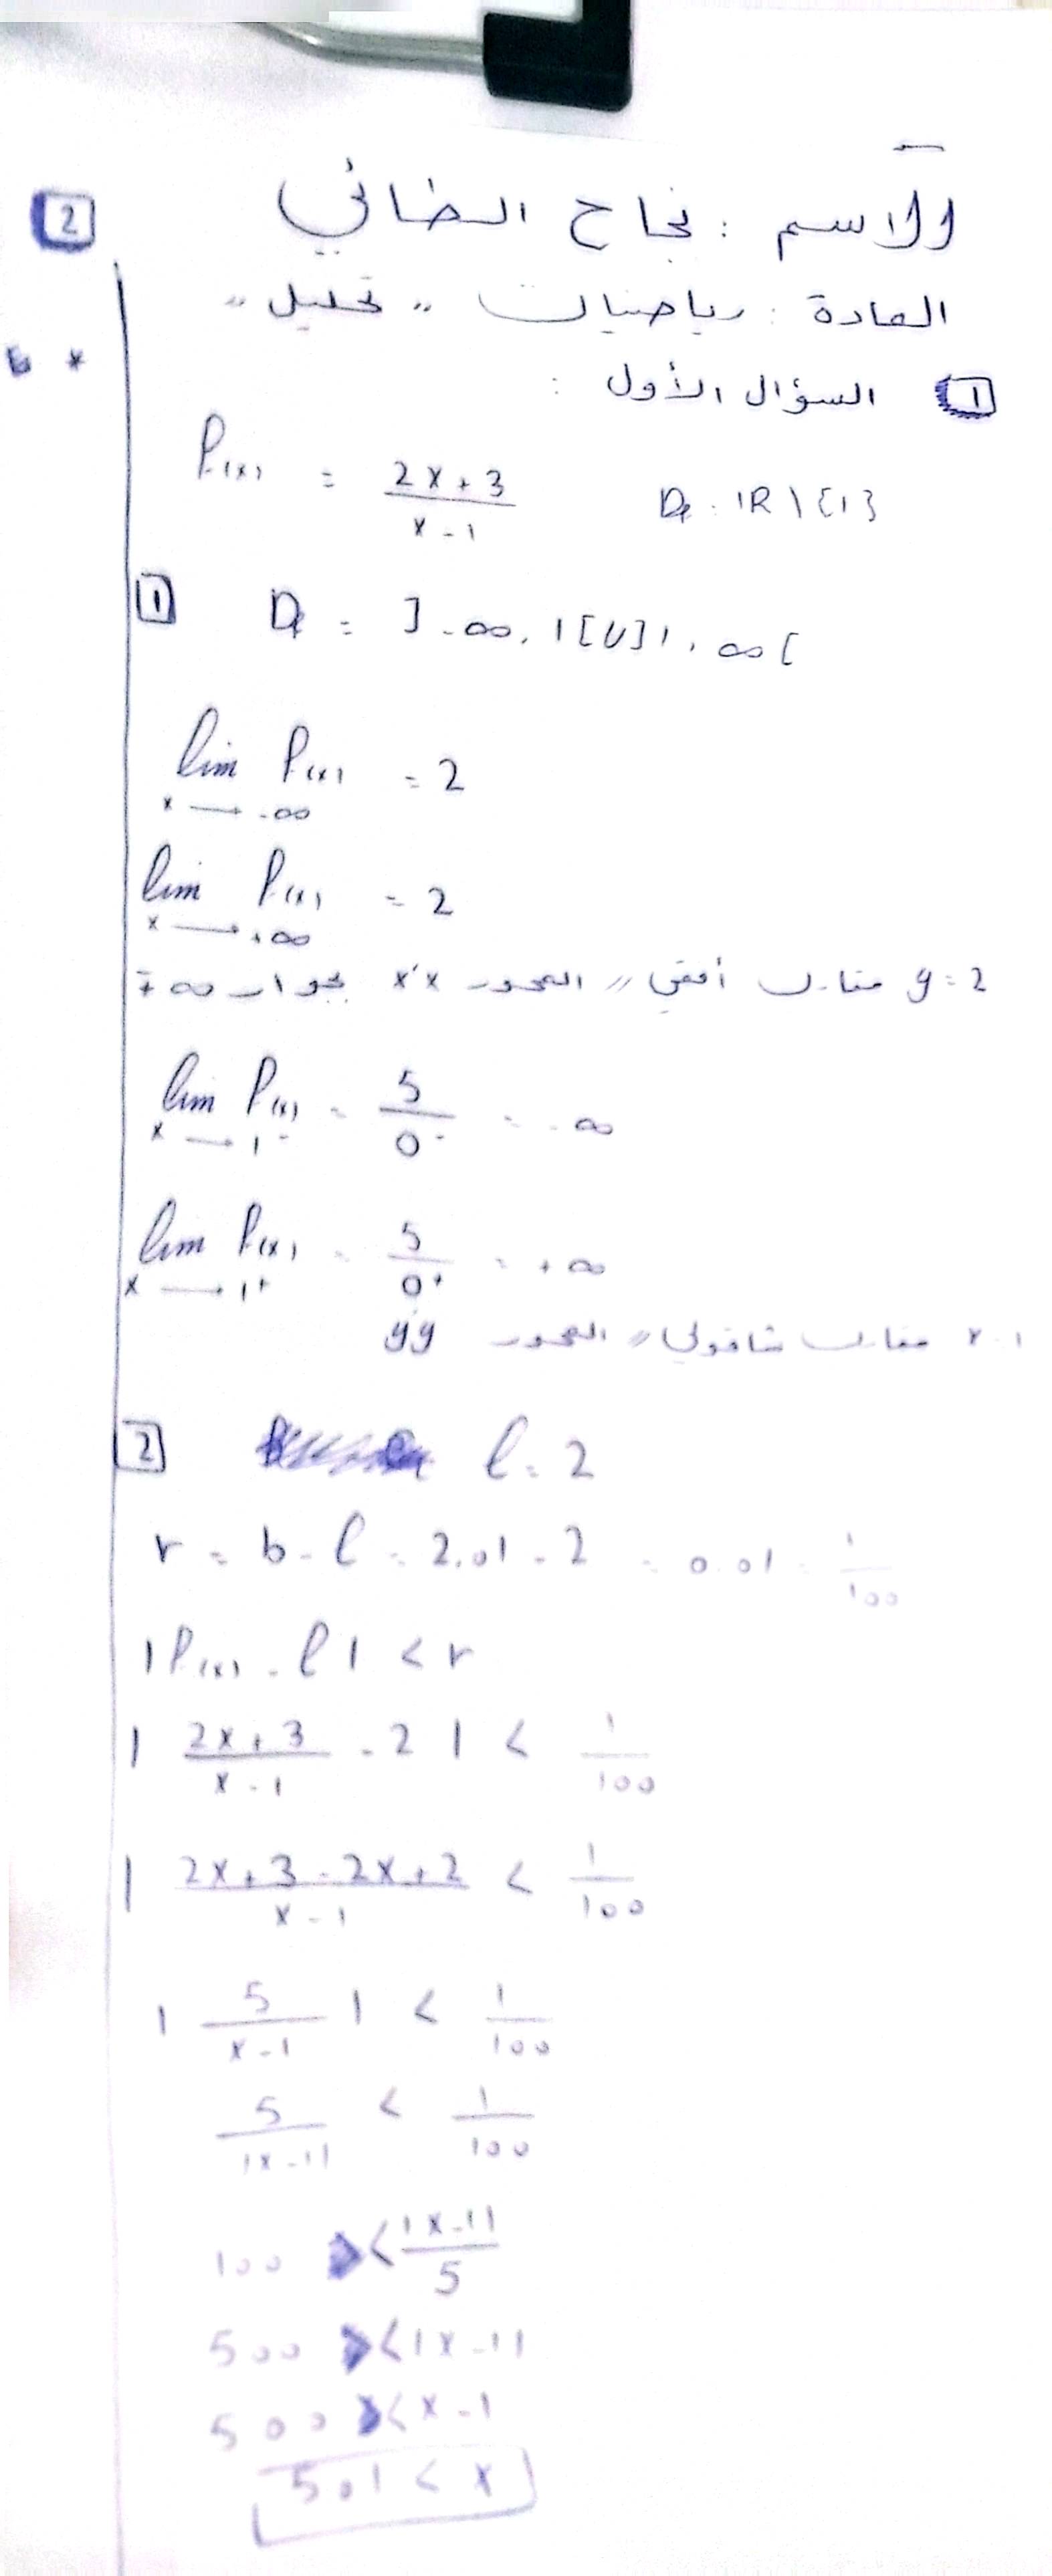 2
الاسم : نجاح الضاني
المادة : رياضيات " تحليل "
1 السؤال الأول :
f(x) = \frac{2x+3}{x-1} D_f : \mathbb{R} \setminus \{1\}
1 D_f = ]-∞, 1[ U ]1, ∞[
\lim_{x \to -∞} f(x) = 2
\lim_{x \to +∞} f(x) = 2
y=2 مقارب أفقي // المحور x'x بجوار ∓∞
\lim_{x \to 1^-} f(x) = \frac{5}{0^-} = -∞
\lim_{x \to 1^+} f(x) = \frac{5}{0^+} = +∞
x=1 مقارب شاقولي // المحور y'y
2 l = 2
r = b - l = 2.01 - 2 = 0.01 = \frac{1}{100}
|f(x) - l| < r
| \frac{2x+3}{x-1} - 2 | < \frac{1}{100}
| \frac{2x+3-2x+2}{x-1} < \frac{1}{100}
| \frac{5}{x-1} | < \frac{1}{100}
\frac{5}{|x-1|} < \frac{1}{100}
100 < \frac{|x-1|}{5}
500 < |x-1|
500 < x-1
501 < x